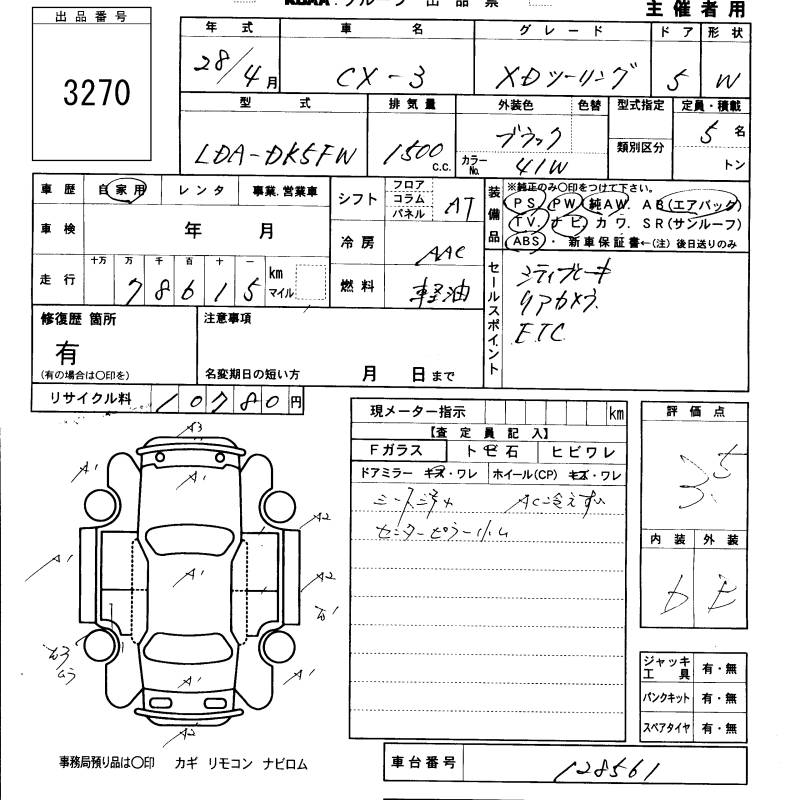 出品票
主催者用
出品番号
3270
年式 車名 グレード ドア 形状
28/4月 CX-3 XDツーリング 5 W
型式 排気量 外装色 色替 型式指定 定員・積載
類別区分
LDA-DK5FW 1500 c.c. ブラック 5名
カラーNo. 41W トン
車歴 自家用 レンタ 事業.営業車
車検 年 月
走行 十万 万 千 百 十 一
78615 km マイル
シフト フロア コラム パネル AT
冷房 AAC
燃料 軽油
装備品
※純正のみ〇印をつけて下さい。
PS. PW. 純AW. AB(エアバッグ)
TV. ナビ. カワ. SR(サンルーフ)
ABS・ 新車保証書←(注) 後日送りのみ
セールスポイント
シティブレーキ
リアカメラ
ETC
修復歴 箇所
有
(有の場合は〇印を)
注意事項
名変期日の短い方 月 日まで
リサイクル料 10780円
現メーター指示 km
【査定員記入】
Fガラス トビ石 ヒビワレ
ドアミラー キズ・ワレ ホイール(CP) キズ・ワレ
AC冷えずい
センターピラー
評価点
3.5
内装 外装
A3
A1
A1
A2
A1
A1
A2
A1
A1
A2
事務局預り品は〇印 カギ リモコン ナビロム
ジャッキ工具 有・無
パンクキット 有・無
スペアタイヤ 有・無
車台番号 128561